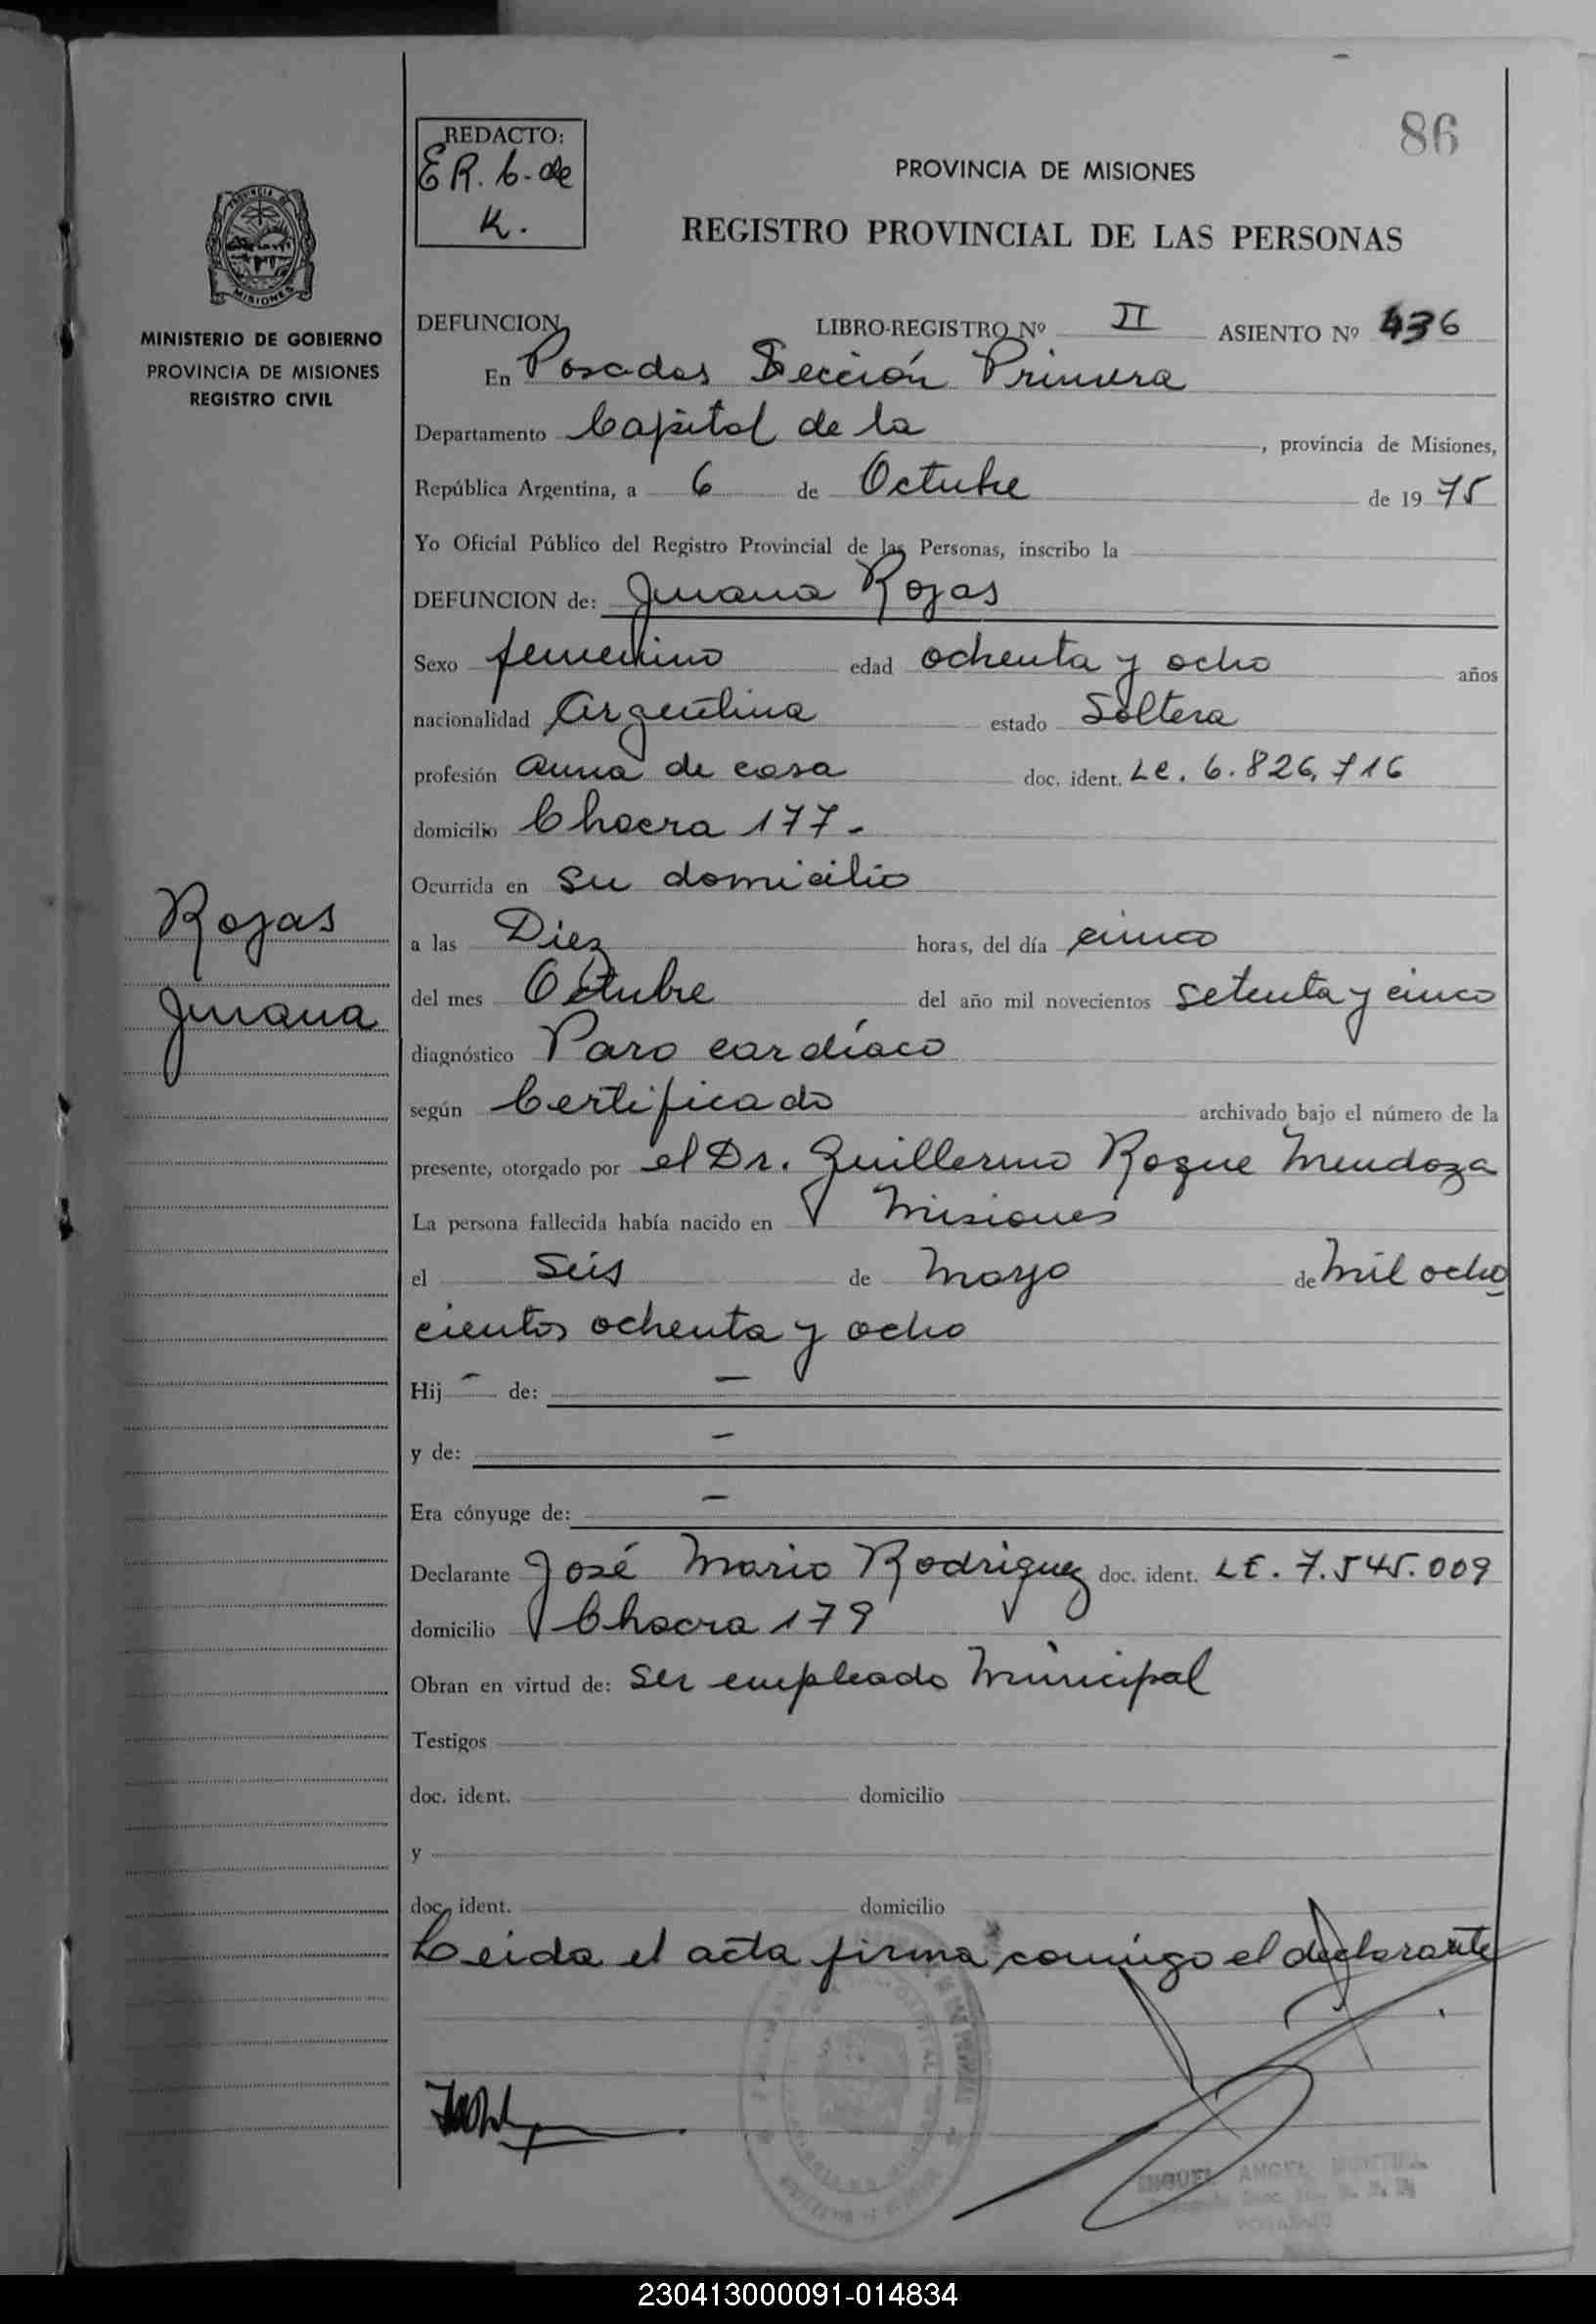 86
REDACTO:
E R. C. de
K.
PROVINCIA DE MISIONES
REGISTRO PROVINCIAL DE LAS PERSONAS
PROVINCIA DE
MISIONES
MINISTERIO DE GOBIERNO
PROVINCIA DE MISIONES
REGISTRO CIVIL
DEFUNCION LIBRO-REGISTRO Nº II ASIENTO Nº 436
En Posadas Sección Primera
Departamento Capital de la, provincia de Misiones,
República Argentina, a 6 de Octubre de 1975
Yo Oficial Público del Registro Provincial de las Personas, inscribo la
DEFUNCION de: Juana Rojas
Sexo femenino edad ochenta y ocho años
nacionalidad Argentina estado Soltera
profesión ama de casa doc. ident. LC. 6.826,716
domicilio Chacra 177-
Ocurrida en su domicilio
Rojas
Juana
a las Diez horas, del día cinco
del mes Octubre del año mil novecientos setenta y cinco
diagnóstico Paro cardíaco
según Certificado archivado bajo el número de la
presente, otorgado por el Dr. Guillermo Roque Mendoza
La persona fallecida había nacido en Misiones
el Seis de Mayo de Mil ocho
cientos ochenta y ocho
Hij - de: -
y de: -
Era cónyuge de: -
Declarante José Mario Rodriguez doc. ident. LE. 7.545.009
domicilio Chacra 179
Obran en virtud de: ser empleado Municipal
Testigos
doc. ident. domicilio
y
doc. ident. domicilio
Leida el acta firma comigo el declarante
MIGUEL ANGEL
230413000091-014834